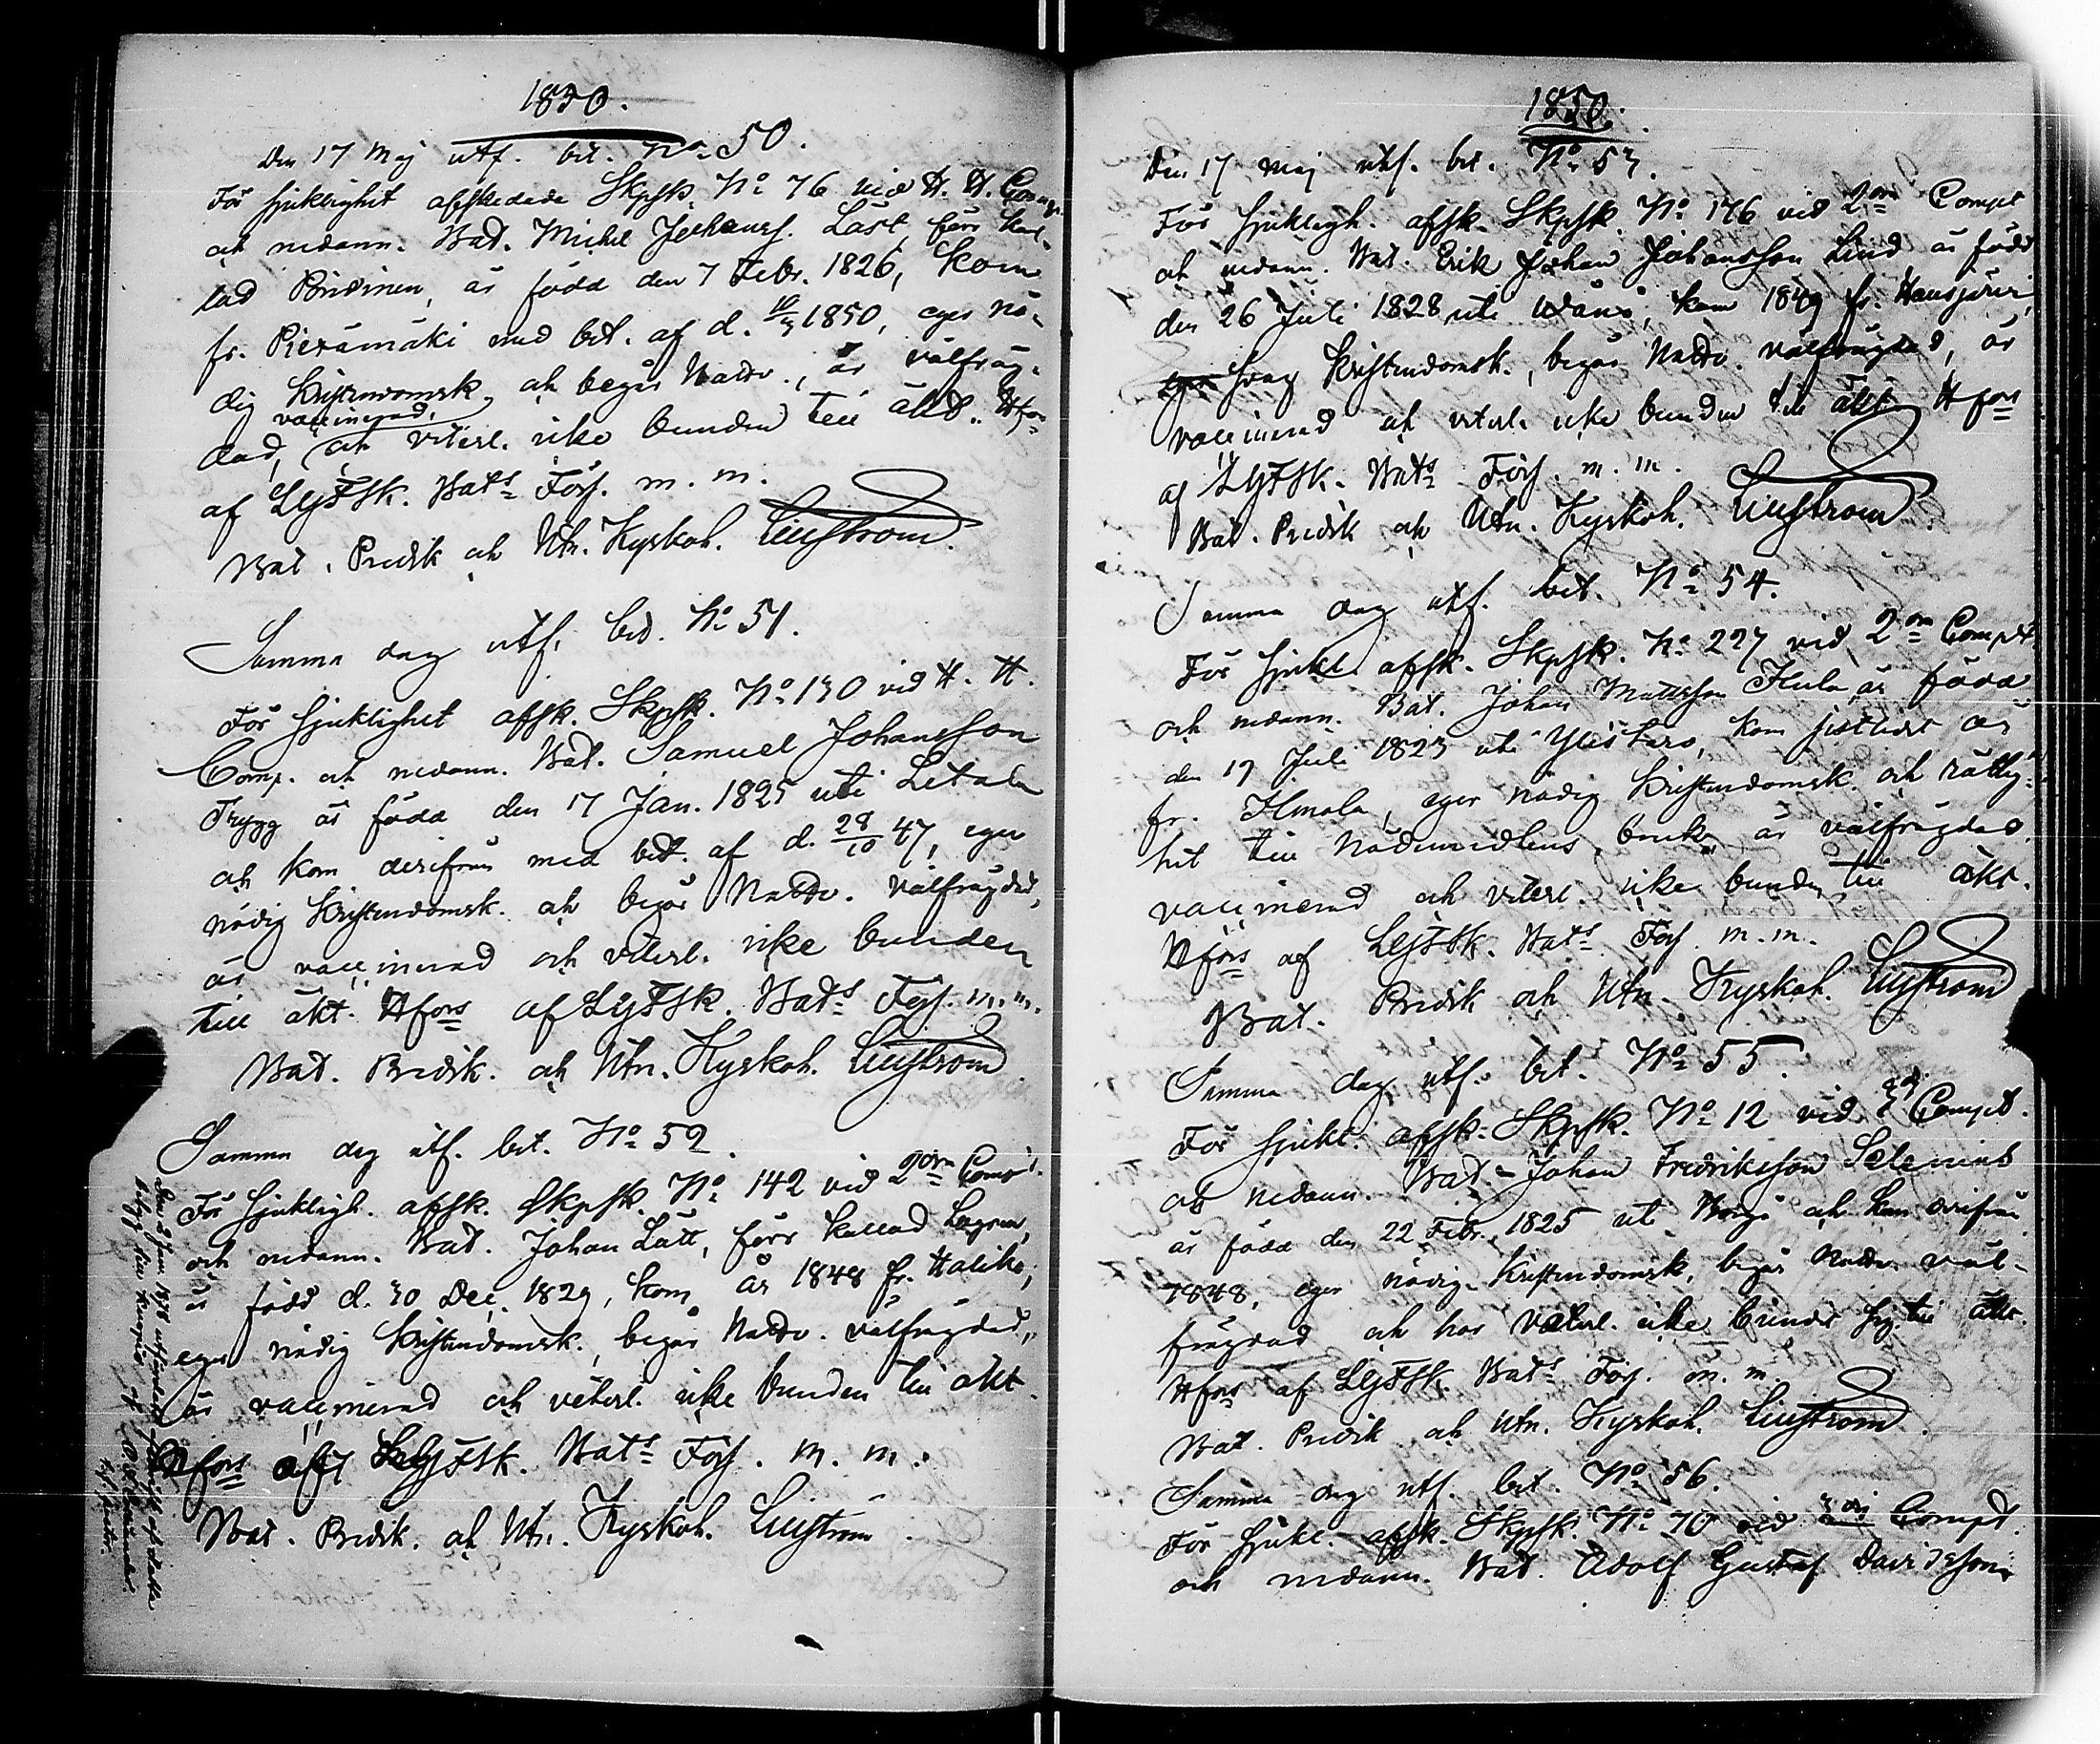 1850.
Den 17 Maj utf. bet. No 50.
För sjuklighet afskedade Skpsk. No 76 vid H. H. Comp.
och nedann. Bat. Michel Johanss. Läst, förr kal-
lad Pridinen, är född den 7 Febr. 1826, kom
fr. Piexämäki med bet. af d. 1850, eger nö-
dig Kristendomsk. och begår Nattv., är välfräg-
vaccinerad,
dad, och veterl. icke bunden till äkt. Hfors
af LgFSk. Bats Förs. m. m.
Bat. Predik och Utn. Kyrkoh. Liljström.
Samma dag utf. bet. No 51.
För sjuklighet afsk. Skpsk. No 130 vid H. H.
Comp. och nedann. Bat. Samuel Johansson
Trygg är född den 17 Jan. 1825 uti Letala
och kom derifrån med bet. af d. 28/10 47, eger
nödig Kristendomsk. och begår Nattv. välfrägdad,
är vaccinerad och veterl. icke bunden
till äkt. Hfors af LgFSk. Bats Förs. m. m.
Bat. Predik. och Utn. Kyrkoh. Liljström.
Samma dag utf. bet. No 52.
För sjukligh. afsk. Skpsk. No 142 vid 2dra Comp.
och nedann. Bat. Johan Lätt, förr kallad Lagren,
är född d. 30 Dec. 1829, kom år 1848 fr. Haliko,
eger nödig Kristendomsk., begår Nattv. välfrägdad,
är vaccinerad och veterl. icke bunden till äkt.
Hfors af LgFSk. Bats Förs. m. m.
Bat. Predik. och Utn. Kyrkoh. Liljström
Den 2 Jun. 1878 utfärdat af detta
betyg
1850.
Den 17 Maj utf. bet. No 53.
För sjukligh. afsk. Skpsk. No 176 vid 2dra Compt
och nedann. Bat. Erik Johan Johansson Lind är född
den 26 Juli 1828 uti Wånå, kom 1849 fr. Hausjärvi,
svag Kristendomsk., begår Nattv. välfrägdad, är
vaccinerad och veterl. icke bunden till äkt. Hfors
af LgFSk. Bats Förs. m. m.
Bat. Predik och Utn. Kyrkoh. Liljström.
Samma dag utf. bet. No 54.
För sjukl. afsk. Skpsk. No 227 vid 2dra Compt
och nedann. Bat. Johan Mattsson Flula är född
den 19 Juli 1823 uti Ylistaro, kom sistlidet år
fr. Ilmola, eger nödig Kristendomsk. och rättig-
het till Nådemedlens bruk, är välfrägdad,
vaccinerad och veterl. icke bunden till äkt.
Hfors af LgFSk. Bats Förs m. m.
Bat. Predik och Utn. Kyrkoh. Liljström
Samma dag utf. bet. No 55.
För sjukl. afsk. Skpsk. No 12 vid Compt.
och nedann. Bat. Johan Fredriksson Selenius
är född den 22 Febr. 1825 uti Borgå och kom derifrån
1848, eger nödig Kristendomsk., begår Nattv. väl-
frägdad och har veterl. icke bundit sig till äkt.
Hfors af LgFSk. Bats Förs. m. m.
Bat. Predik och Utn. Kyrkoh. Liljström.
Samma dag utf. bet. No 56.
För sjukl. afsk. Skpsk. No 70 vid Compt.
och nedann. Bat. Adolf Gustaf Davidsson